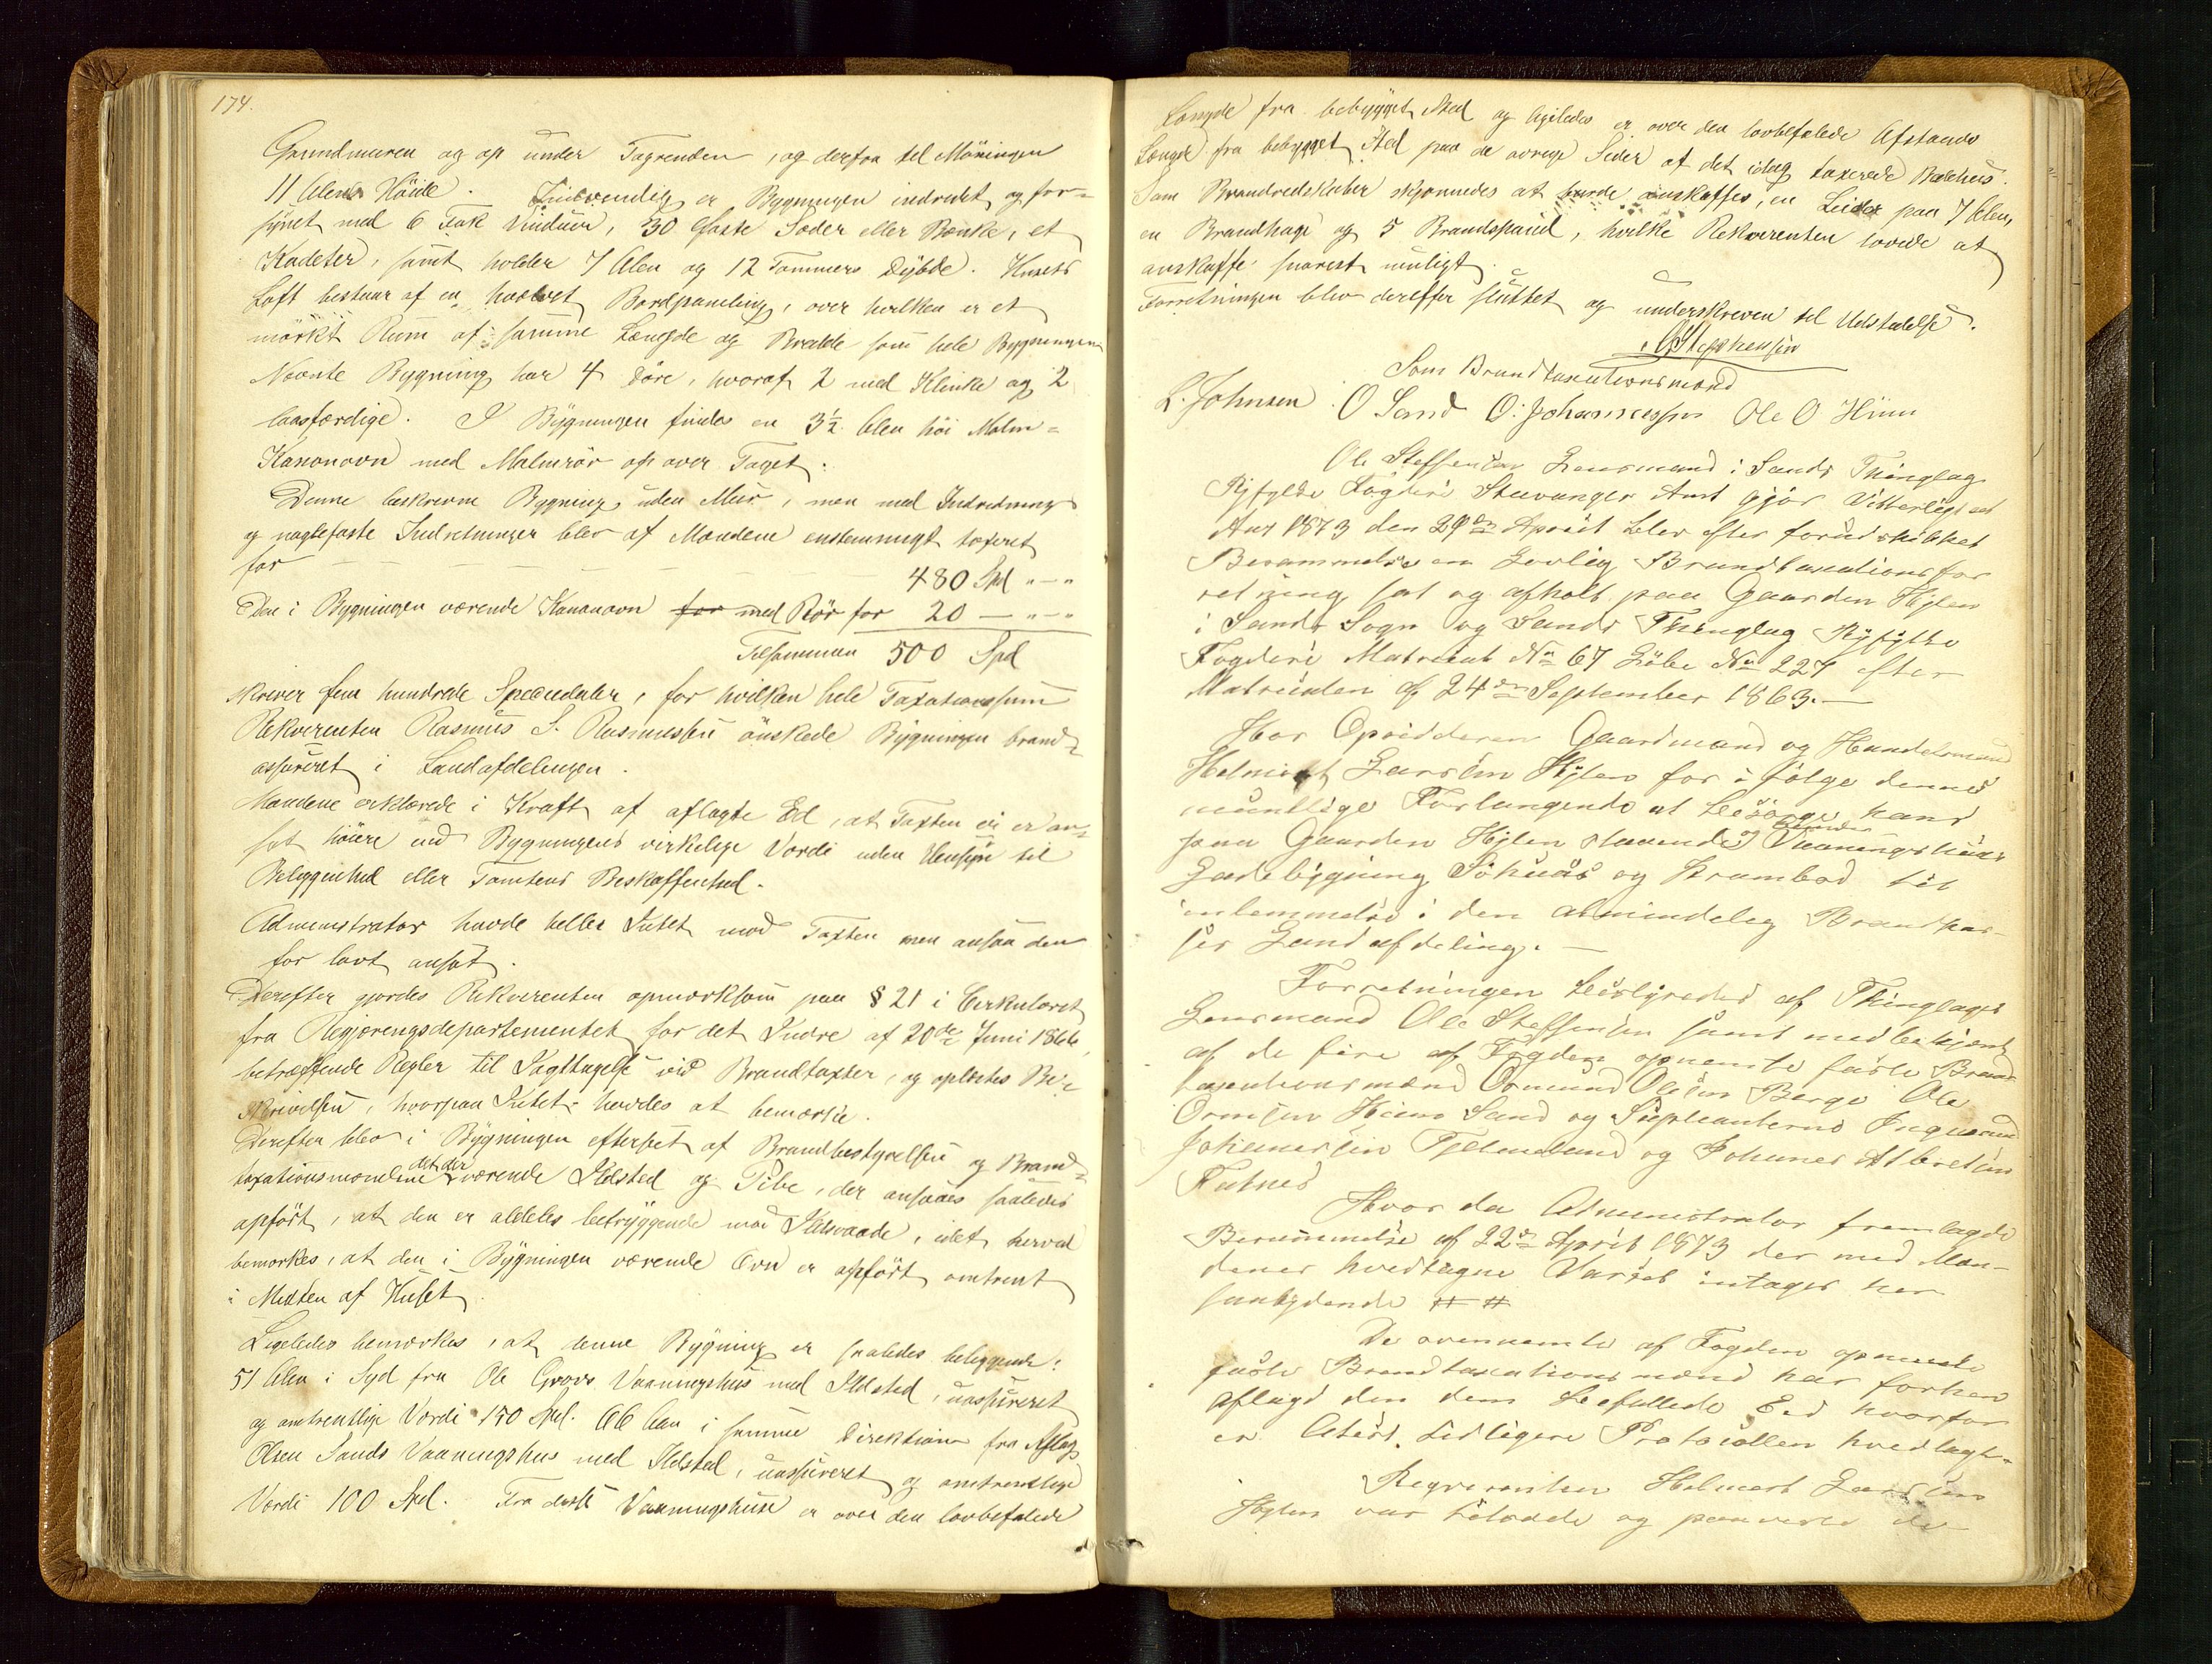 174.
Grundmuren og op under Tagrenden, og derfra til Möningen
11 Alens Höide. Indvendig er Bygningen indredet og for-
synet med 6 Fak Vinduer, 30 faste Sæder eller Bænke, et
Katheter, samt holder 7 Alen og 12 Tommers Dybde. Husets
Loft bestaar af en hvælvet Bordpaneling, over hvilken er et
mörkt Rum af samme Længde og Bredde som hele Bygningen
Nævnte Bygning har 4 Döre, hvoraf 2 med Klinke og 2
laasfærdige. I Bygningen findes en 3½ Alen höi Malm-
Kanonovn med Malmrör op over Taget.
Denne beskrevne Bygning uden Mur, men med Indredning
og naglefaste Indretninger blev af Mændene enstemmigt taxeret
for — — — — — 480 Spd " - "
Den i Bygningen værende Kanonovn for med Rör for 20 — " - "
Tilsammen 500 Spd
skriver fem hundrede Speciedaler, for hvilken hele Taxationssum
Rekverenten Rasmus S. Rasmussen önskede Bygningen brand-
assureret i Landafdelingen.
Mændene erklærede i Kraft af aflagte Ed, at Taxten ei er an-
sat höiere end Bygningens virkelige Værdi uden Hensyn til
Beliggenhed eller Tomtens Beskaffenhed.
Administrator havde heller Intet mod Taxten men ansaa den
for lavt ansat.
Derefter gjordes Rekverenten opmærksom paa § 21 i Cirkulæret
fra Regjeringsdepartementet for det Indre af 20de Juni 1866,
betræffende Regler til Iagttagelse ved Brandtaxter, og oplæstes Be-
skrivelsen, hvorpaa Intet havdes at bemærke.
Derefter blev i Bygningen efterseet af Brandbestyrelsen og Brand-
taxationsmændene det der værende Ildsted og Pibe, der ansaaes saaledes
opfört, at den er aldeles betryggende mod Ildsvaade, idet herved
bemærkes, at den i Bygningen værende Ovn er opfört omtrent
i Midten af Huset.
Ligeledes bemærkes, at denne Bygning er saaledes beliggende:
51 Alen i Syd fra Ole Groos Vaaningshus med Ildsted, uassureret
og omtrentlige Værdi 150 Spd. 66 Alen i samme Direktion fra Aslag
Olsen Sands Vaaningshus med Ildsted, uassureret og omtrentlige
Værdi 100 Spd. Fra dette Vaaningshuse er over den lovbefalede
Længde fra bebygget Sted og ligeledes er over den lovbefalede Afstands
Længde fra bebygget Sted paa de övrige Sider af det idag taxerede Bedehus.
Som Brandredskaber skjönnedes at burde anskaffes, en Leider paa 7 Alen,
en Brandhage og 5 Brandspand, hvilke Rekverenten lovede at
anskaffe snarest muligt.
Forretningen blev derefter sluttet og underskreven til Udstedelse.
O Stephensen
Som Brandtaxationsmænd
L. Johnsen O Sand O. Johannessen Ole O Hiim
Ole Steffensen Lensmand i Sands Thinglag
Ryfylke Fogderi Stavanger Amt gjör Vitterligt at
Aar 1873 den 29de April blev efter forudskikket
Berammelse en Lovlig Brandtaxationsfor
retning sat og afholt paa Gaarden Hylen
i Sands Sogn og Sands Thinglag Ryfylke
Fogderi Matricul No 67 Löbe No 227 efter
Matriculen af 24de September 1863.—
Hos Opsidderen Gaardmand og Handelsmand
Helmich Larsen Hylen for i fölge dennes
muntlige Forlangende at besörge hans
paa Gaarden Hylen staaende Vaaningshuus
Ladebygning Söhuus og Krambod til
inlemmelse i den almindelig Brandkas-
ses Landafdeling.—
Forretningen bestyredes af Thinglagets
Lensmand Ole Steffensen samt medbetjent
af de fire af Fogden opnemte faste Brand-
taxationsmænd Osmund Olsen Berge Ole
Ormsen Hiim Sand og Supleanterne Ingmund
Johannessen Fjelmeland og Johanes Albretsen
Hvor da Administrator fremlagde
Berammelse af 22de April 1873 der med Mæn-
denes hvedtagne Varsel intages her
saalydende # #
De ovennemte af Fogden opnemte
faste Brandtaxationsmænd har forhen
aflagt den dem befallede Ed hvorfor
er Atest tidligere Protocollen hvedlagt.
Reqverenten Helmech Larsen
Hylen var tilstæde og paaviste de